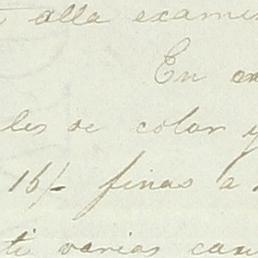 alla examin
En
les de colar y
16/- finas a
ti varias can